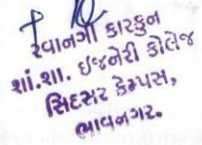 રવાનગી કારકુન
શાં.શા. ઇજનેરી કોલેજ
સિદસર કેમ્પસ,
ભાવનગર.